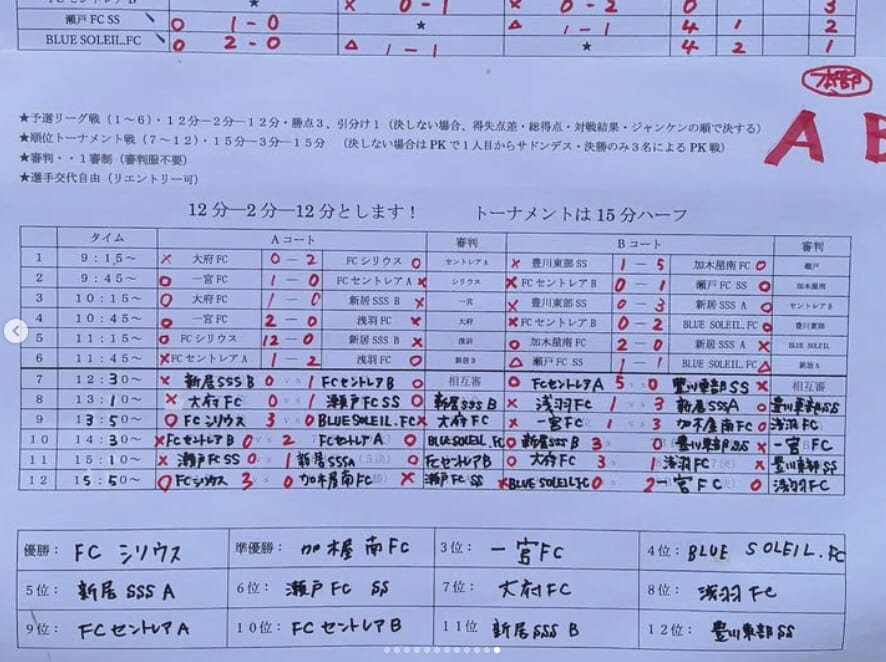 × 0-1 × 0-2 0 3
瀬戸FC SS ○ 1-0 ★ △ 1-1 4 1 2
BLUE SOLEIL.FC ○ 2-0 △ 1-1 ★ 4 2 1
本部
A B
★予選リーグ戦（1～6）・12分―2分―12分・勝点3、引分け1（決しない場合、得失点差・総得点・対戦結果・ジャンケンの順で決する）
★順位トーナメント戦（7～12）・15分―3分―15分 （決しない場合はPKで1人目からサドンデス・決勝のみ3名によるPK戦）
★審判・・1審制（審判服不要）
★選手交代自由（リエントリー可）
12分―2分―12分とします！ トーナメントは15分ハーフ
タイム Aコート 審判 Bコート 審判
1 9:15～ × 大府FC 0-2 FCシリウス ○ セントレアA × 豊川東部SS 1-5 加木屋南FC ○ 瀬戸
2 9:45～ ○ 一宮FC 1-0 FCセントレアA × シリウス × FCセントレアB 0-1 瀬戸FC SS ○ 加木屋南
3 10:15～ ○ 大府FC 1-0 新居SSS B × 一宮 × 豊川東部SS 0-3 新居SSS A ○ セントレアB
4 10:45～ ○ 一宮FC 2-0 浅羽FC × 大府 × FCセントレアB 0-2 BLUE SOLEIL.FC ○ 豊川東部
5 11:15～ ○ FCシリウス 12-0 新居SSS B × 浅羽 ○ 加木屋南FC 2-0 新居SSS A × BLUE SOLEIL
6 11:45～ × FCセントレアA 1-2 浅羽FC ○ 新居B △ 瀬戸FC SS 1-1 BLUE SOLEIL.FC △ 新居A
7 12:30～ × 新居SSS B 0 vs 1 FCセントレアB ○ 相互審 ○ FCセントレアA 5 0 豊川東部SS × 相互審
8 13:10～ × 大府FC 0 1 瀬戸FC SS ○ 新居SSS B × 浅羽FC 1 3 新居SSSA ○ 豊川東部SS
9 13:50～ ○ FCシリウス 3 0 BLUE SOLEIL.FC × 大府FC × 一宮FC 1 3 加木屋南FC ○ 浅羽FC
10 14:30～ × FCセントレアB 0 vs 2 FCセントレアA ○ BLUE SOLEIL.FC ○ 新居SSS B 3 0 豊川東部SS × 一宮FC
11 15:10～ × 瀬戸FC SS 0 1 新居SSSA ○ FCセントレアB ○ 大府FC 3 1 浅羽FC × 豊川東部SS
12 15:50～ ○ FCシリウス 3 0 加木屋南FC × 瀬戸FC SS × BLUE SOLEIL.FC 0 2 一宮FC ○ 浅羽FC
優勝： FC シリウス 準優勝： 加木屋南FC 3位： 一宮FC 4位： BLUE SOLEIL.FC
5位： 新居SSS A 6位： 瀬戸FC SS 7位： 大府FC 8位： 浅羽FC
9位： FCセントレアA 10位： FCセントレアB 11位 新居SSS B 12位： 豊川東部SS